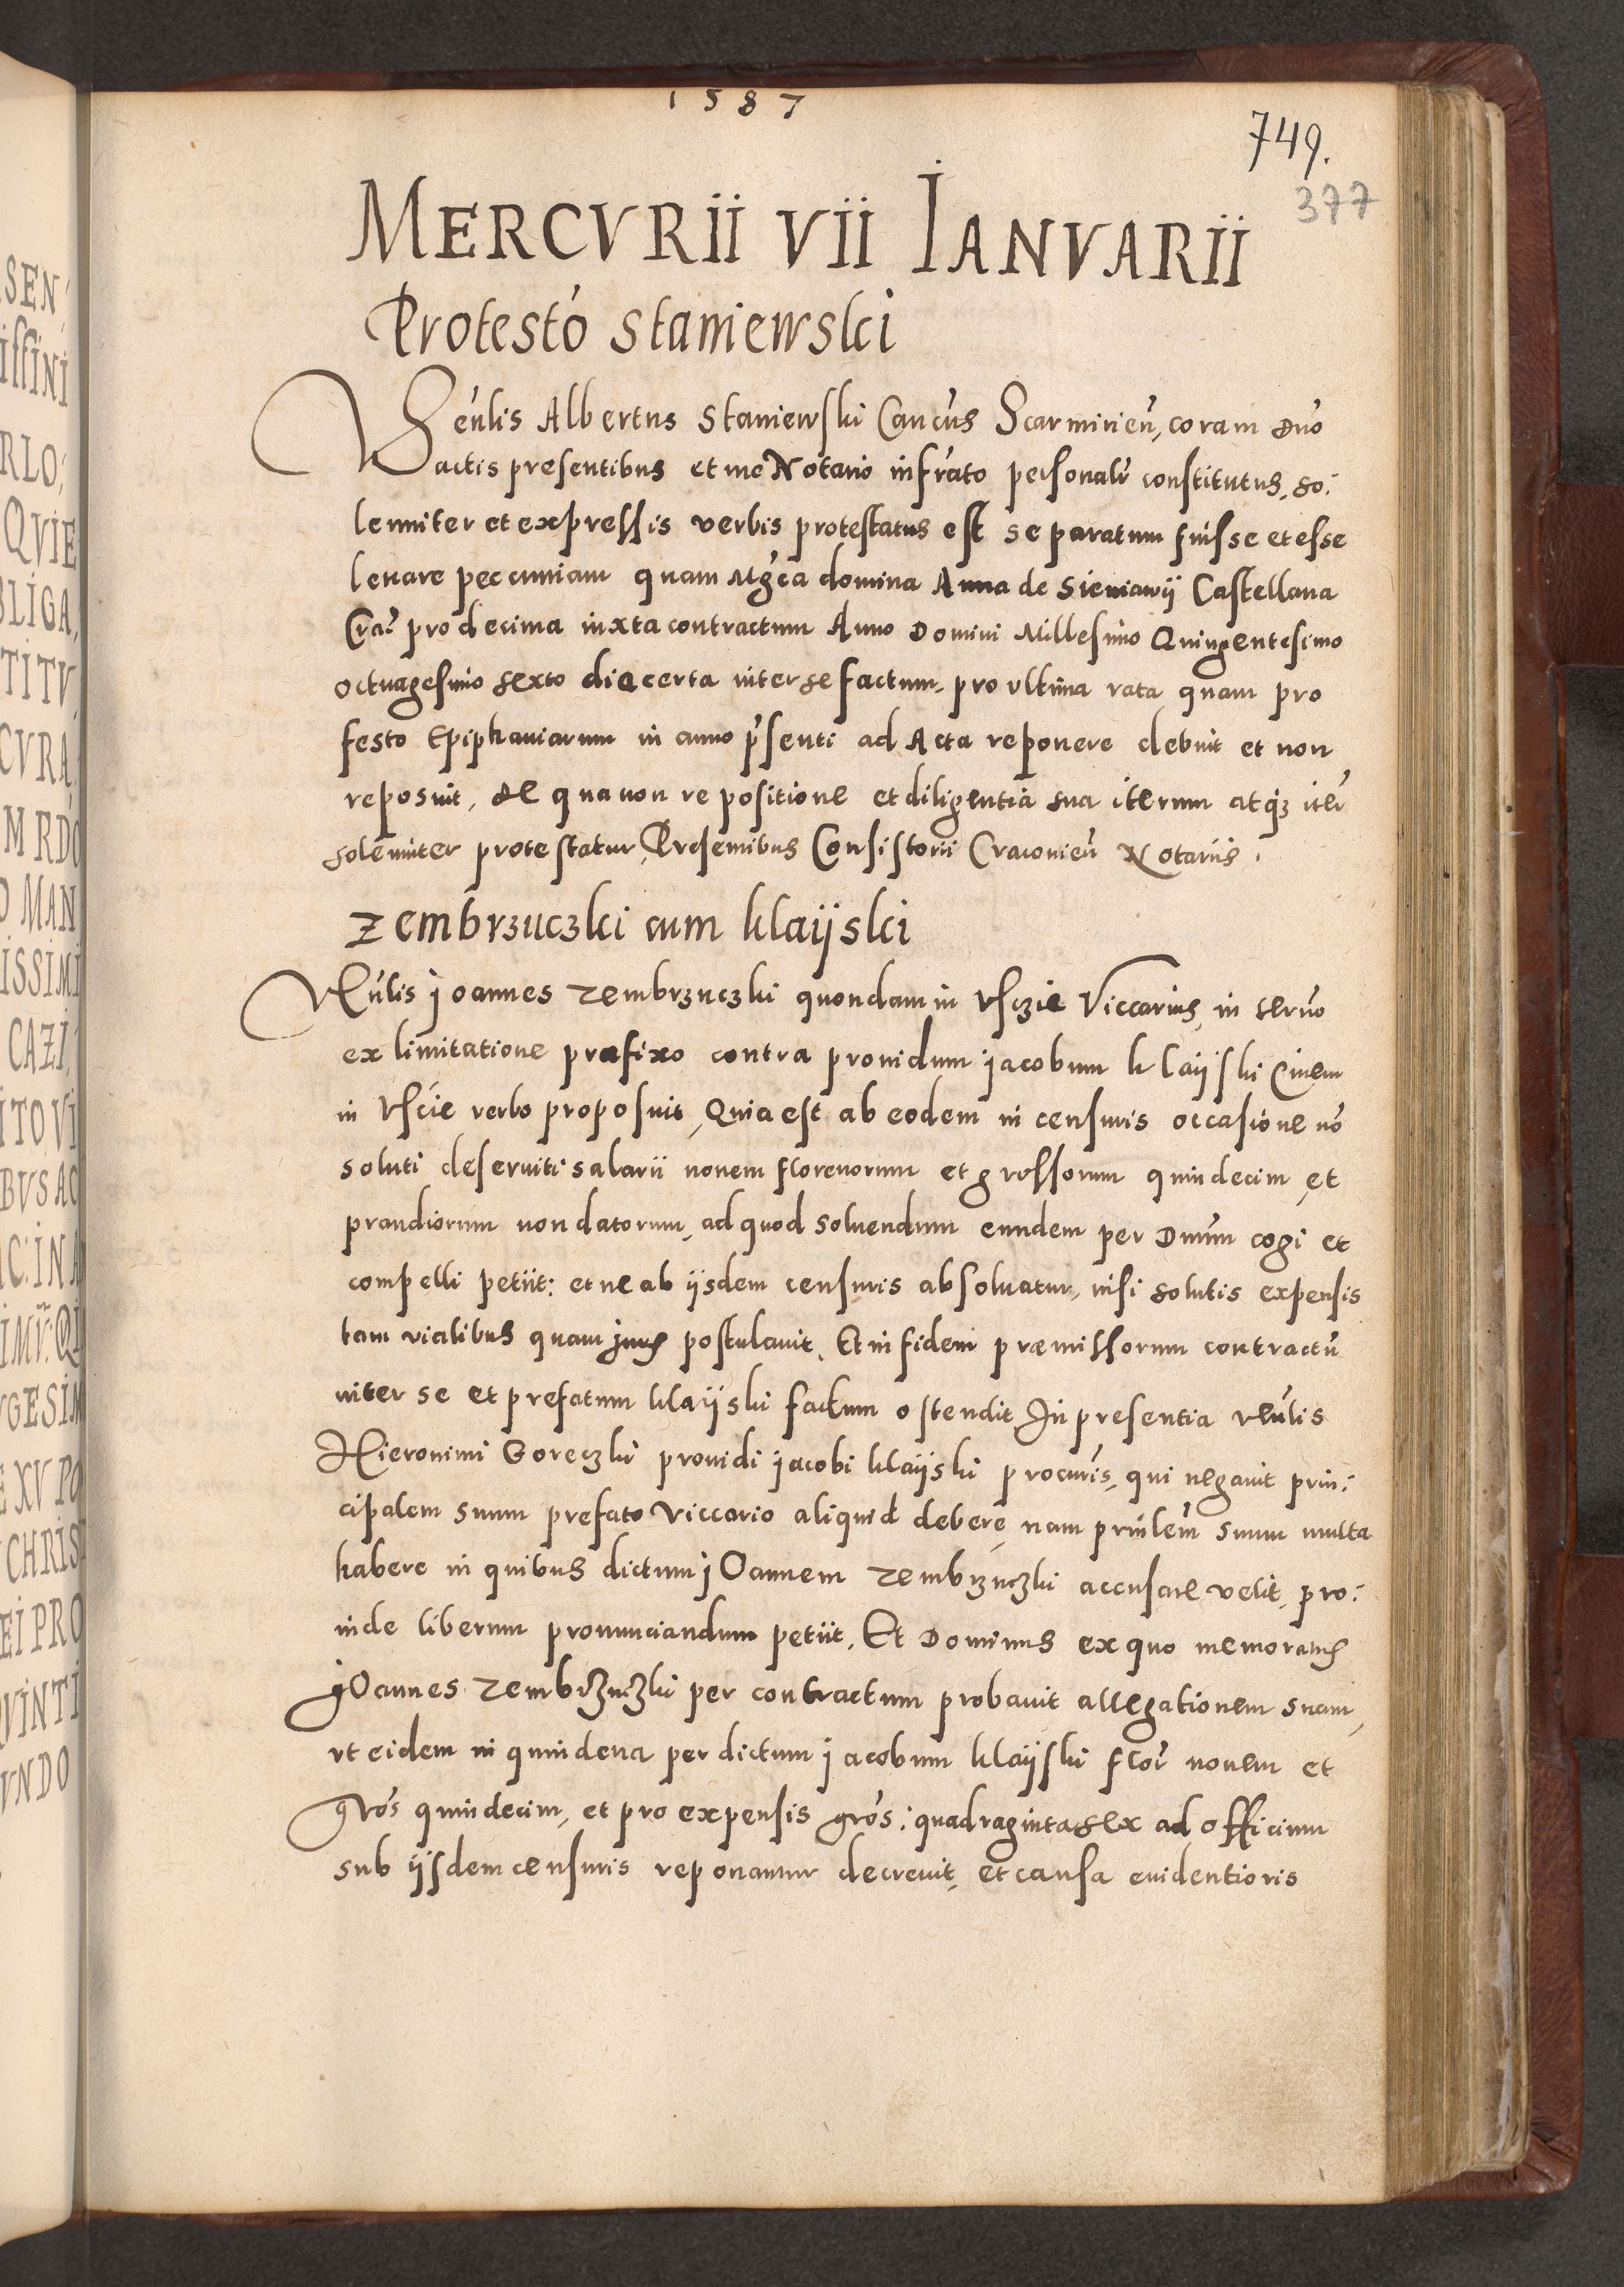 1587
749.
377
MERCVRII VII IANVARII
Protesto Staniewski
Venlis Albertus Staniewski Cancus Scarmirien, coram Dno
actis presentibus et me Notario infrato personalr constitutus, so:
lenniter et expressis verbis protestatus est se paratum fuisse et esse
leuare peccuniam quam Mgca domina Anna de Sieniawij Castellana
Cra: pro decima iuxta contractum Anno Domini Millesimo Quingentesimo
octuagesimo sexto die certa inter se factum, pro vltima rata quam pro
festo Epiphaniarum in anno prsenti ad Acta reponere debuit et non
reposuit, de qua non repositione et diligentia sua iterum atq3 iter
solenniter protestatur, Presentibus Consistorii Cracouien Notariis.
Zembrzuczki cum Klaijski
Venlis Joannes Zembrzuczki quondam in Vsczie Viccarius, in termo
ex limitatione prafixo contra prouidum Jacobum Klaijski Ciuem
in Vscie verbo proposuit, Quia est ab eodem in censuris occasione no
soluti deseruiti salarii nouem florenorum et grossorum quindecim, et
prandiorum non datorum, ad quod soluendum eundem per Dnum cogi et
compelli petiit: et ne ab ijsdem censuris absoluatur, nisi solutis expensis
tam vialibus quam juris postulauit. Et in fidem præmissorum contractu
inter se et prefatum Klaijski factum ostendit In presentia Venlis
Hieronimi Goreczki prouidi Jacobi Klaijski procuris, qui negauit prin:
cipalem suum prefato Viccario aliquid debere, nam prinlem suum multa
habere in quibus dictum Joannem Zembrzuczki accusare velit, pro:
inde liberum pronunciandum petiit. Et Dominus ex quo memoratus
Joannes Zembrzuczki per contractum probauit allegationem suam,
vt eidem in quindena per dictum Jacobum Klaijski flor nouem et
gros quindecim, et pro expensis gros: quadraginta sex ad officium
sub ijsdem censuris reponantur decreuit, et causa euidentioris